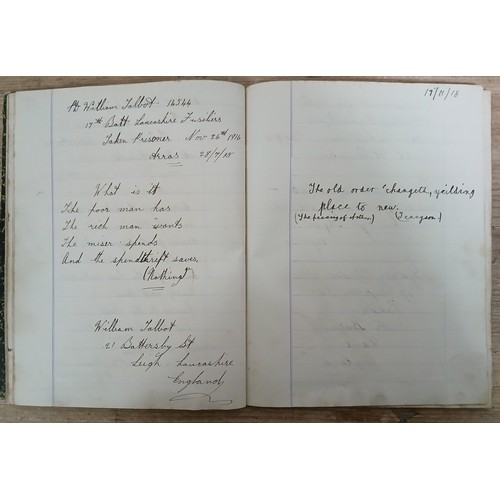 Pte William Talbot 14344
17th Batt Lancashire Fusiliers
Taken Prisoner Nov 26th 1916
Arras 28/7/18
What is it
The poor man has
The rich man wants
The miser spends
And the spendthrift saves.
(Nothing)
William Talbot
21 Battersby St
Leigh Lancashire
England
17/11/18
The old order changeth, yeilding
place to new.
(The passing of Arthur) (Tennyson)